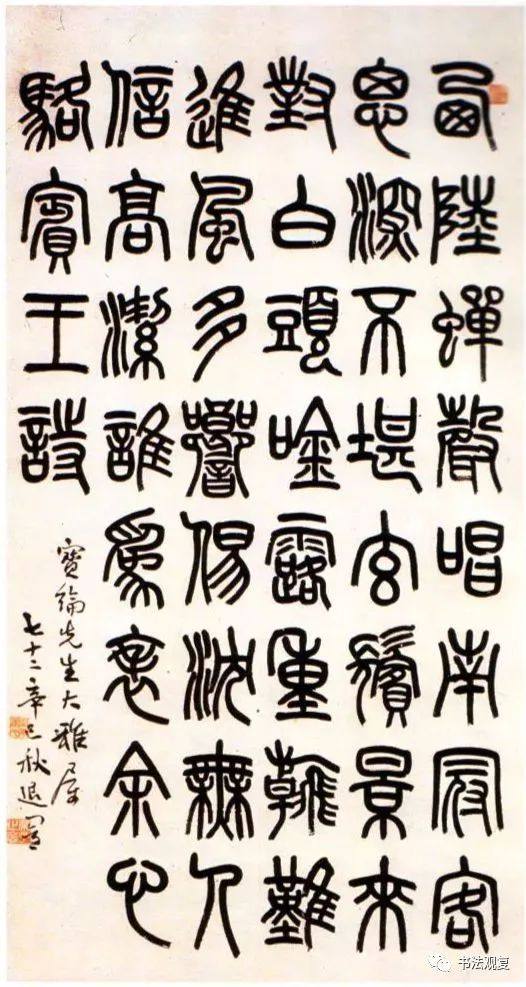 西陸蟬聲唱南冠客
思深不堪玄鬢景來
對白頭唫露重難
進風多響㑥沈無人
信高潔誰爲表余心
駱賓王詩
寶綸先生大雅屬
七十二辛巳秋退闇
书法观复